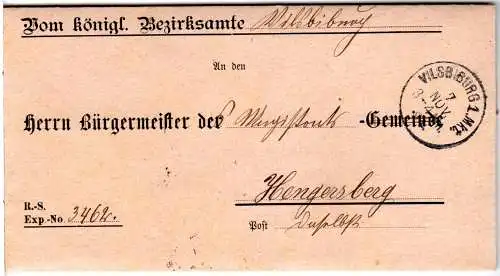 Vom königl. Bezirksamte Vilsbiburg
An den
VILSBIBURG 1. Mkt.
7
NOV
Herrn Bürgermeister der Magistrats -Gemeinde
Hengersberg
R.-S.
Exp.-No. 3462.
Post daselbst